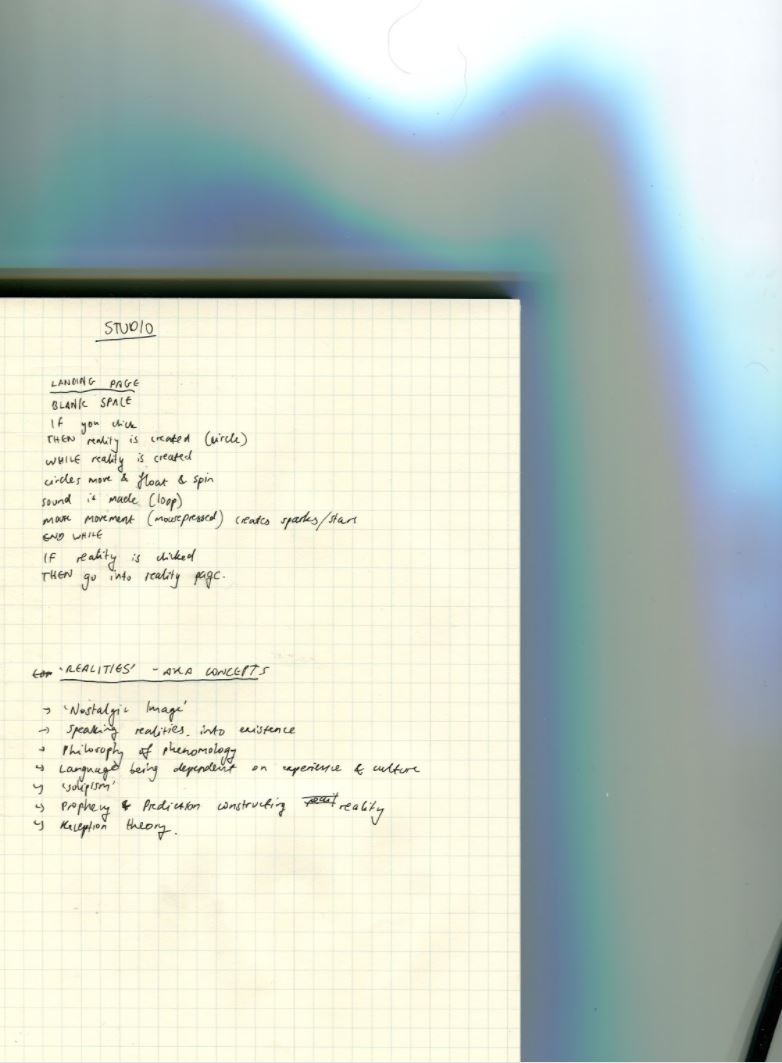 STUDIO
LANDING PAGE
BLANK SPACE
IF you click
THEN reality is created (circle)
WHILE reality is created
circles move & float & spin
sound is made (loop)
mouse movement (mousepressed) creates sparks/stars
END WHILE
IF reality is clicked
THEN go into reality page.
'REALITIES' - AKA CONCEPTS
→ 'Nostalgic Image'
→ Speaking realities into existence
→ Philosophy of phenomology
↳ Language being dependent on experience & culture
↳ 'solipism'
↳ Prophecy & Prediction constructing reality
↳ Reception theory.